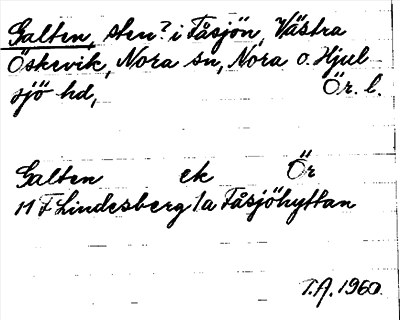 Galten, sten? i Fåsjön, Västra
Öskevik, Nora sn, Nora o. Hjul
sjö hd, Ör. l.
Galten ek Ör
11 F Lindesberg 1a Fåsjöhyttan
T.A. 1960.